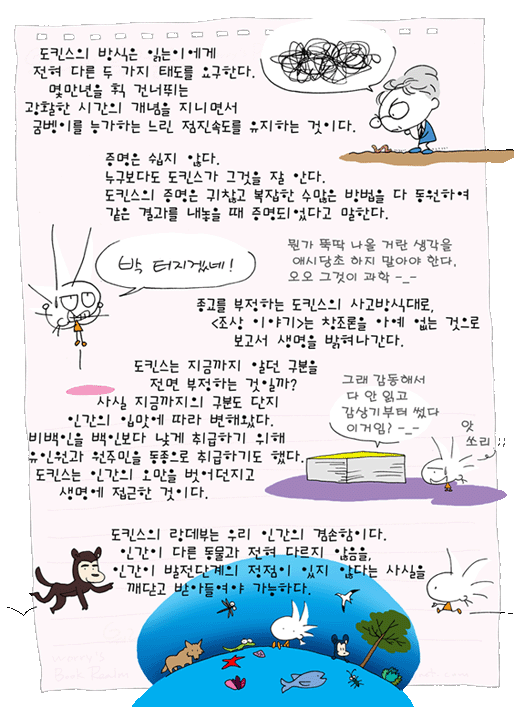 도킨스의 방식은 읽는이에게
전혀 다른 두 가지 태도를 요구한다.
몇만년을 휙 건너뛰는
광활한 시간의 개념을 지니면서
굼벵이를 능가하는 느린 점진속도를 유지하는 것이다.
증명은 쉽지 않다.
누구보다도 도킨스가 그것을 잘 안다.
도킨스의 증명은 귀찮고 복잡한 수많은 방법을 다 동원하여
같은 결과를 내놓을 때 증명되었다고 말한다.
박 터지겠네!
뭔가 뚝딱 나올 거란 생각을
애시당초 하지 말아야 한다.
오오 그것이 과학 -_-
종고를 부정하는 도킨스의 사고방식대로,
<조상 이야기>는 창조론을 아예 없는 것으로
보고서 생명을 밝혀나간다.
도킨스는 지금까지 알던 구분을
전면 부정하는 것일까?
사실 지금까지의 구분도 단지
인간의 입맛에 따라 변해왔다.
비백인을 백인보다 낮게 취급하기 위해
유인원과 원주민을 동종으로 취급하기도 했다.
도킨스는 인간의 오만을 벗어던지고
생명에 접근한 것이다.
그래 감동해서
다 안 읽고
감상기부터 썼다
이거임? -_-
앗
쏘리
도킨스의 랑데부는 우리 인간의 겸손함이다.
인간이 다른 동물과 전혀 다르지 않음을,
인간이 발전단계의 정점이 있지 않다는 사실을
깨닫고 받아들여야 가능하다.